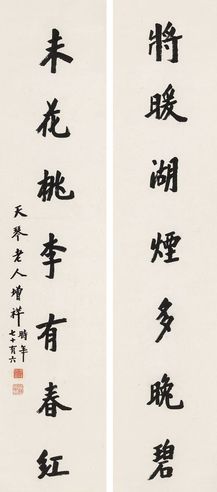 將暖湖煙多晚碧
未花桃李有春紅
天琴老人增祥時年
七十有六